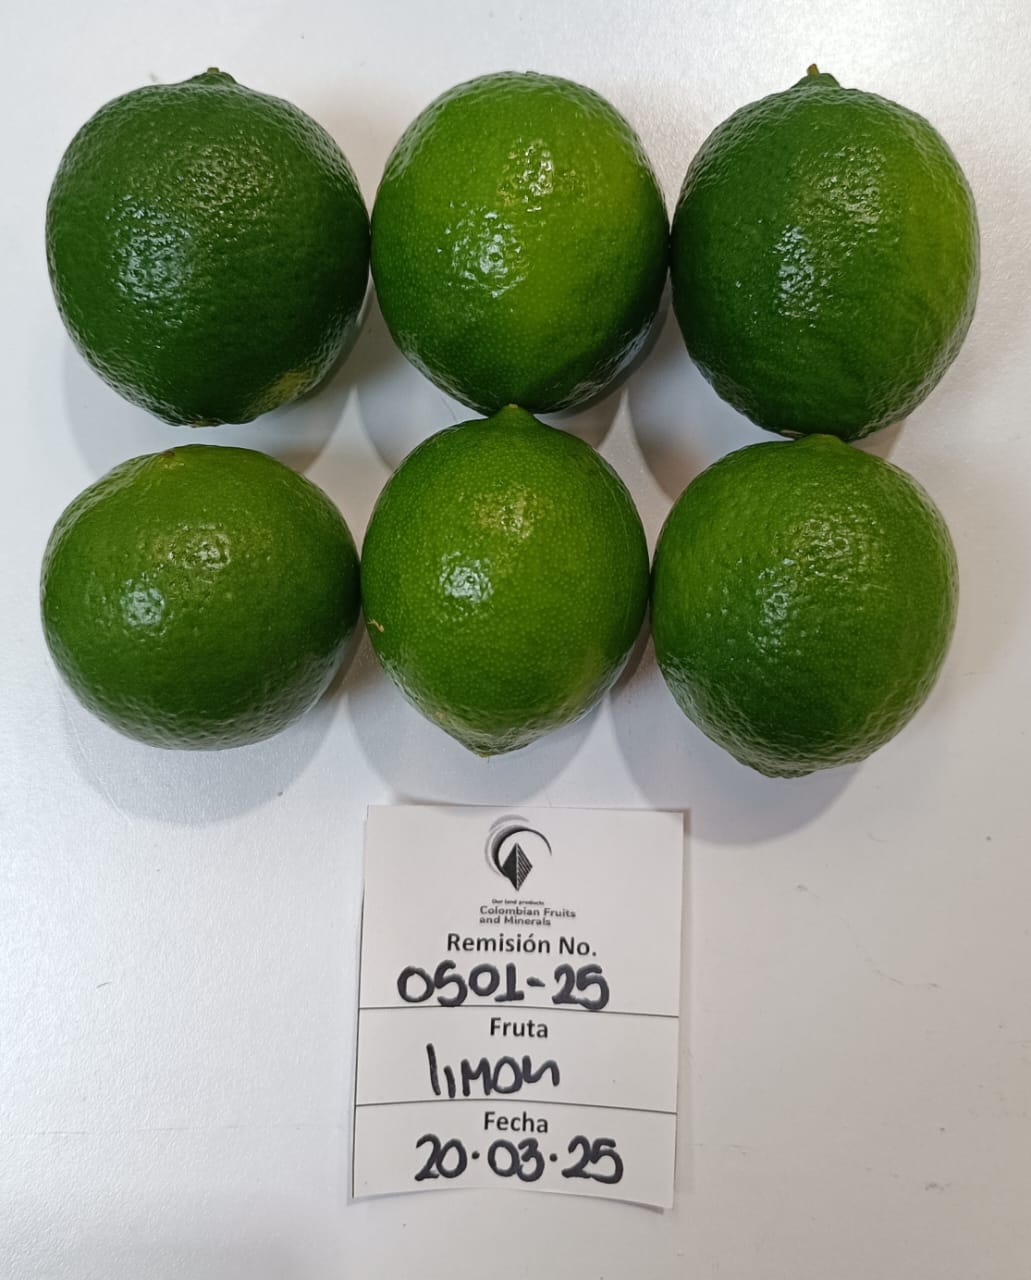 Our land products
Colombian Fruits
and Minerals
Remisión No.
0501-25
Fruta
limon
Fecha
20.03.25